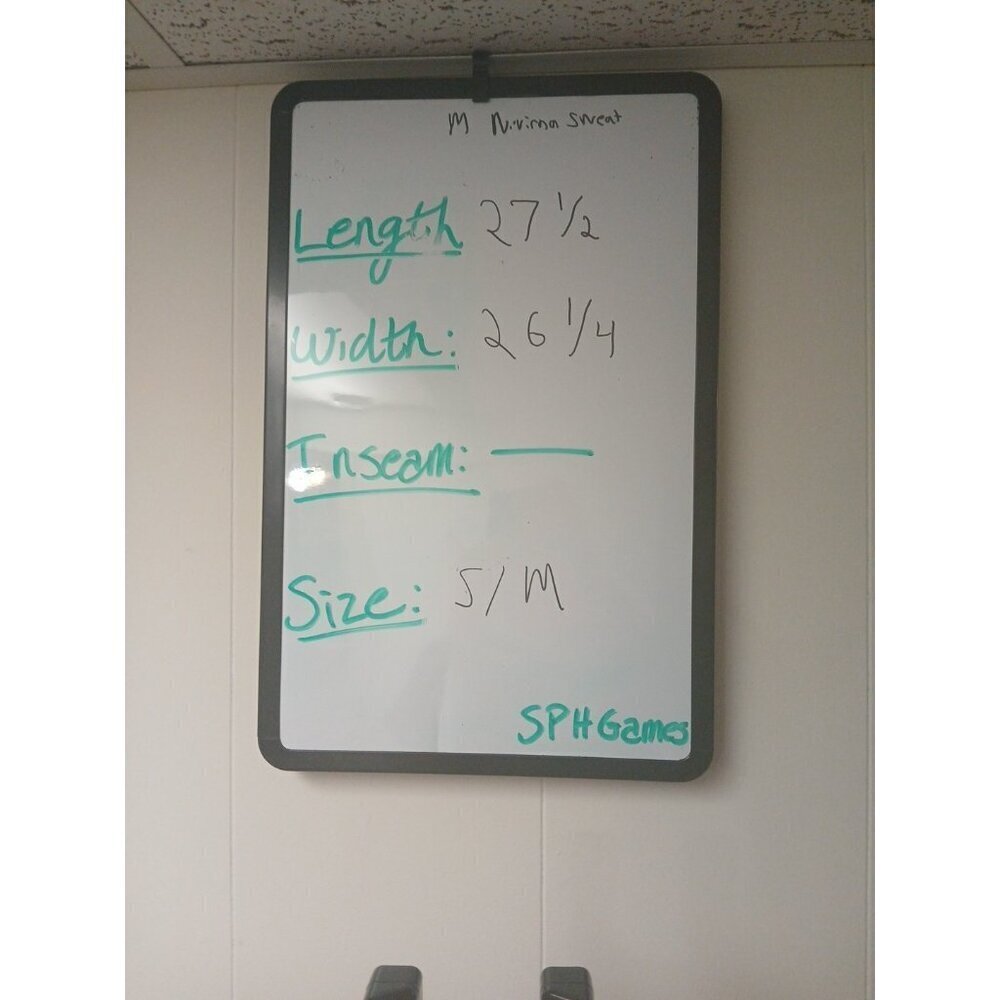 M Nirvana Sweat
Length 27 1/2
Width: 26 1/4
Inseam: —
Size: S/M
SPHGames